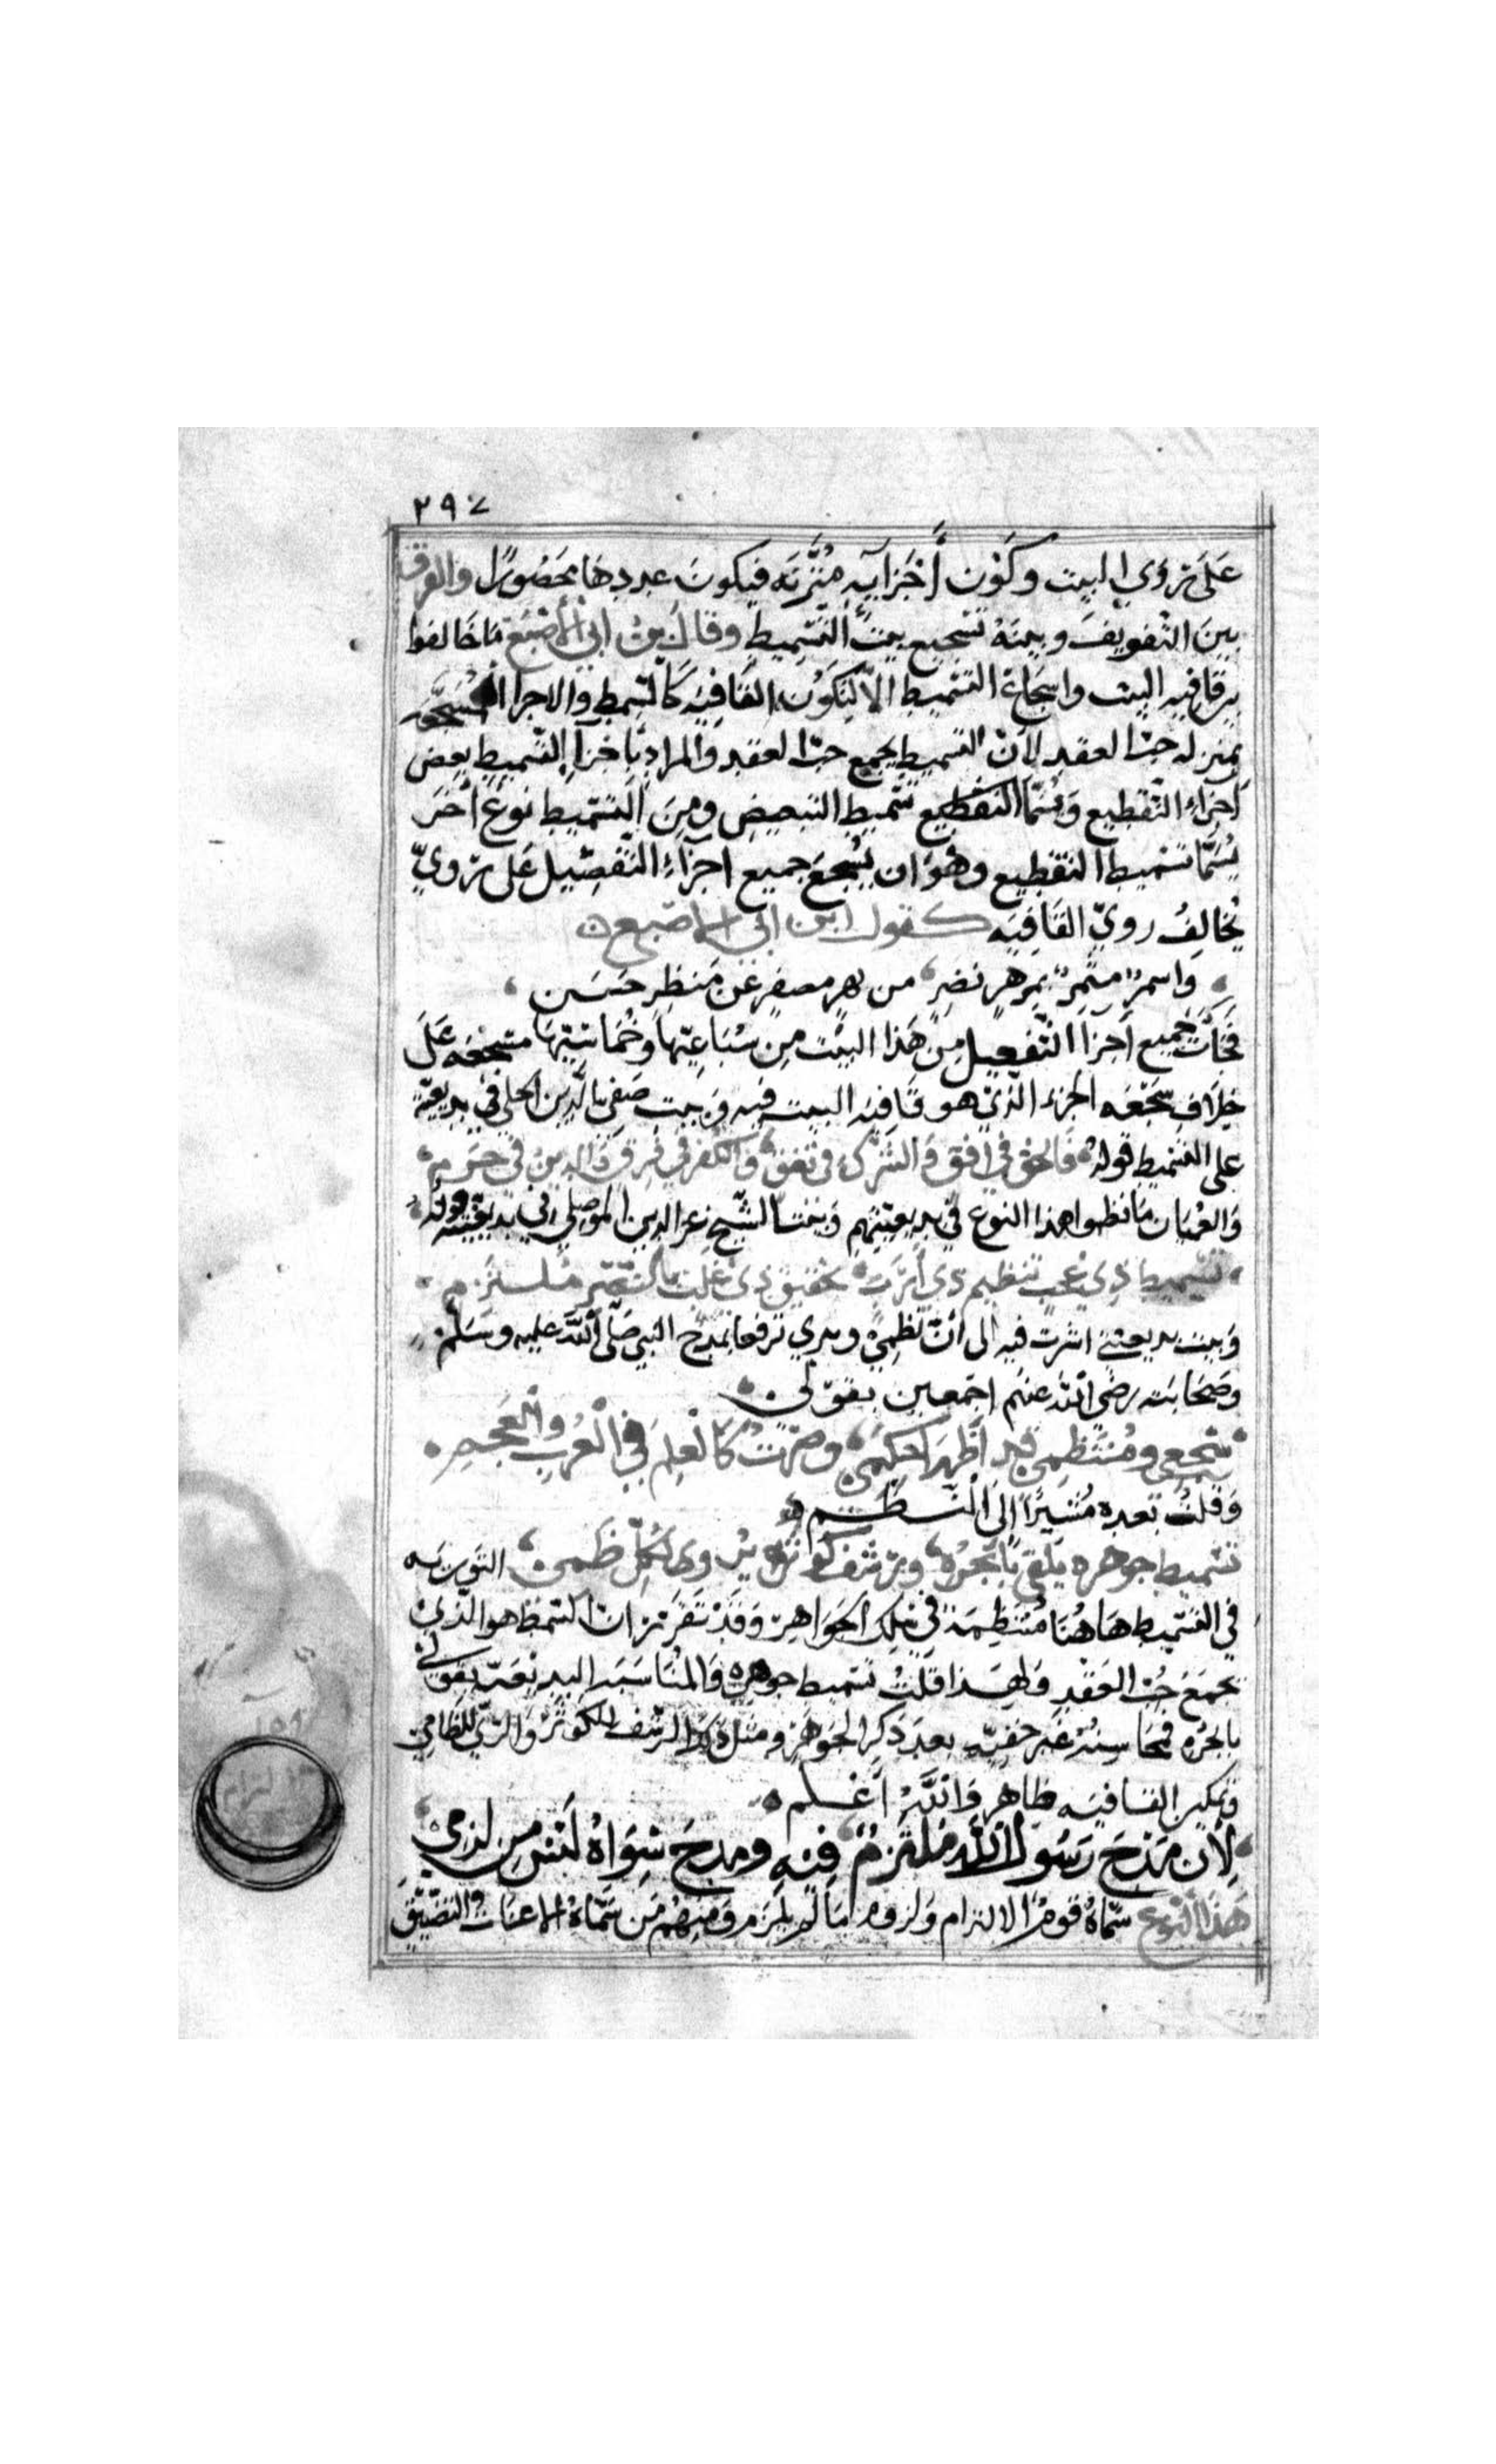 ٢٩٧
عَلَى روي البيت وكَوْن أَجْزَايِه مُتَّزِنَه فيكونَ عددها مَحصُورًا والفرق
بينَ التفويف وبينَهُ تسجيع بيت التَّسْمِيط وقال بن ابي الأصْبَع مَا خالفوا
قافيه البيت واسجاع التسْميط الّا لِتَكَوُن القَافيَه كَالسّمط والاجزا المسَجّعه
بمنزله حبّ العقد لانّ السّمط يجمع حبّ العقد والمراد بأجزآ التسْميط بعض
اجزاءِ التّقطيع وَيُسَمَّا التقطيع تَسْمِيط التبعيض ومِنَ التَّسْمِيط نوعٌ اخَر
يُسَمَّا تسْميط التقطيع وهُوَ ان يُسْجَعَ جميع اجزاءِ التَّفصّيل عَلى رَويّ
يُخالِفُ رويّ القَافِيَه كقول ابن ابي الاصبع
وَاسمرٍ مثمرٍ بمزهرٍ نضرٍ من مقمرٍ مسفرٍ عَن مَنظرٍ حَسَن
فَجَأت جَميع اَجزا التّفعيل مِن هَذا البيْت مِن سُبَاعِيّهَا وَخُمَاسِيّهَا مسَجّعَه عَلَى
خِلَاف سَجْعَه الجزء الّذي هو قَافيه البيت فيه وَبيت صَفي الدّين الحلي في بديعيّته
على التسْميط قوله فَالحَق في افق وَالشّرك في نفق وَالكُفر في فَرق وَالدينُ في حَرَم
وَالعُمْيَان مَا نظموا هذا النوع في بديعيّتهم وَبَيْت الشّيخ عز الدين الموصِلي في بديعيّته قوله
تسْميط ذي عجب تنظيم ذي اَدَب تحقيق ذي غَلَب بالنّصْر ملتزم
وَبيت بديعيّتي اشرت فيه الى أنّ نَظمِي ونثري ترفعا بمَدح النبي صَلّى اللَّه عليه وسَلم
وصَحَابته رضي اللَّه عنهم اجمَعين بقولي
سَجعي ومُنتَظِمي قد اَظهَرا حِكَمي وصرْتُ كَالْعِلم في الْعُرب وَالْعَجَم
وَقلتُ بعده مُشيرًا الى التسميط
تسْميط جوهره يَلقي بابحُرِهِ ورشف كَوثره يُروي لكُلّ ظَمي التورِيَه
في التسْميط هَاهُنَا مُنتَظِمَة في سِلك الجَوَاهِر وَقَدْ تقرّر ان السّمط هو الّذي
يجمَعُ حُبّ العَقْد وَلِهَذا قلتُ تسْميط جوهَره وَالمُنَاسَبَه البديعيّه بقولي
بابحُرِهِ فمَحَاسِنُهُ غَير خَفِيّه بعدَ ذكر الجَوهَر ومثله ذِكر الرشف للكوثر وَالريّ للظامي
وتمكين القافيه ظاهر وَاللَّهُ اَعْلم
لِأن مَدْحَ رَسُول اللَّه مُلتَزمي فيهِ ومدحَ سِوَاهُ لَيْسَ من لزمي
هَذَا النَّوع سَمّاهُ قومٌ الالتزام وَلزوم مَا لم يلزم وَمنهُم مَن سَمّاهُ الاعنات وَالتضييق